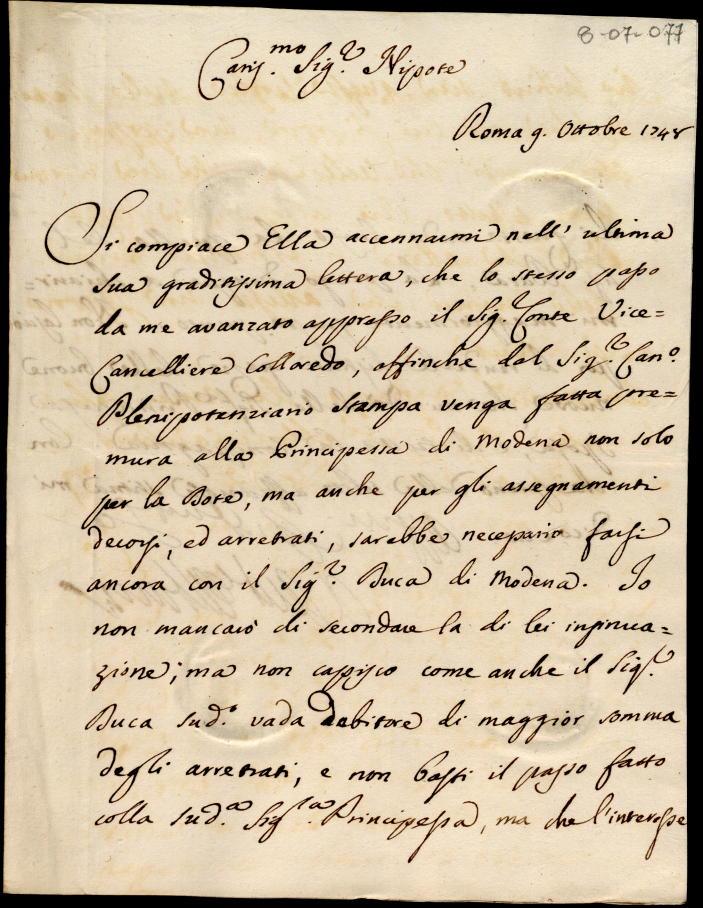 8-07-077
Cariſ.mo Sig.r Nipote
Roma 9. Ottobre 1748
Si compiace Ella accennarmi nell' ultima
sua graditiſsima lettera, che lo stesso paſso
da me avanzato appreſso il Sig.r Conte Vice=
Cancelliere Colloredo, affinche dal Sig.r Can.o
Plenipotenziario Stampa venga fatta pre=
mura alla Principessa di Modena non solo
per la Dote, ma anche per gli assegnamenti
decorſi, ed arretrati, sarebbe neceſsario farſi
ancora con il Sig.r Duca di Modena. Io
non mancarò di secondare la di lei inſinua=
zione; ma non capiſco come anche il Sig.r
Duca sud.o vada debitore di maggior somma
degli arretrati, e non baſti il paſso fatto
colla sud.a Sig.ra Principeſsa, ma che l'intereſse